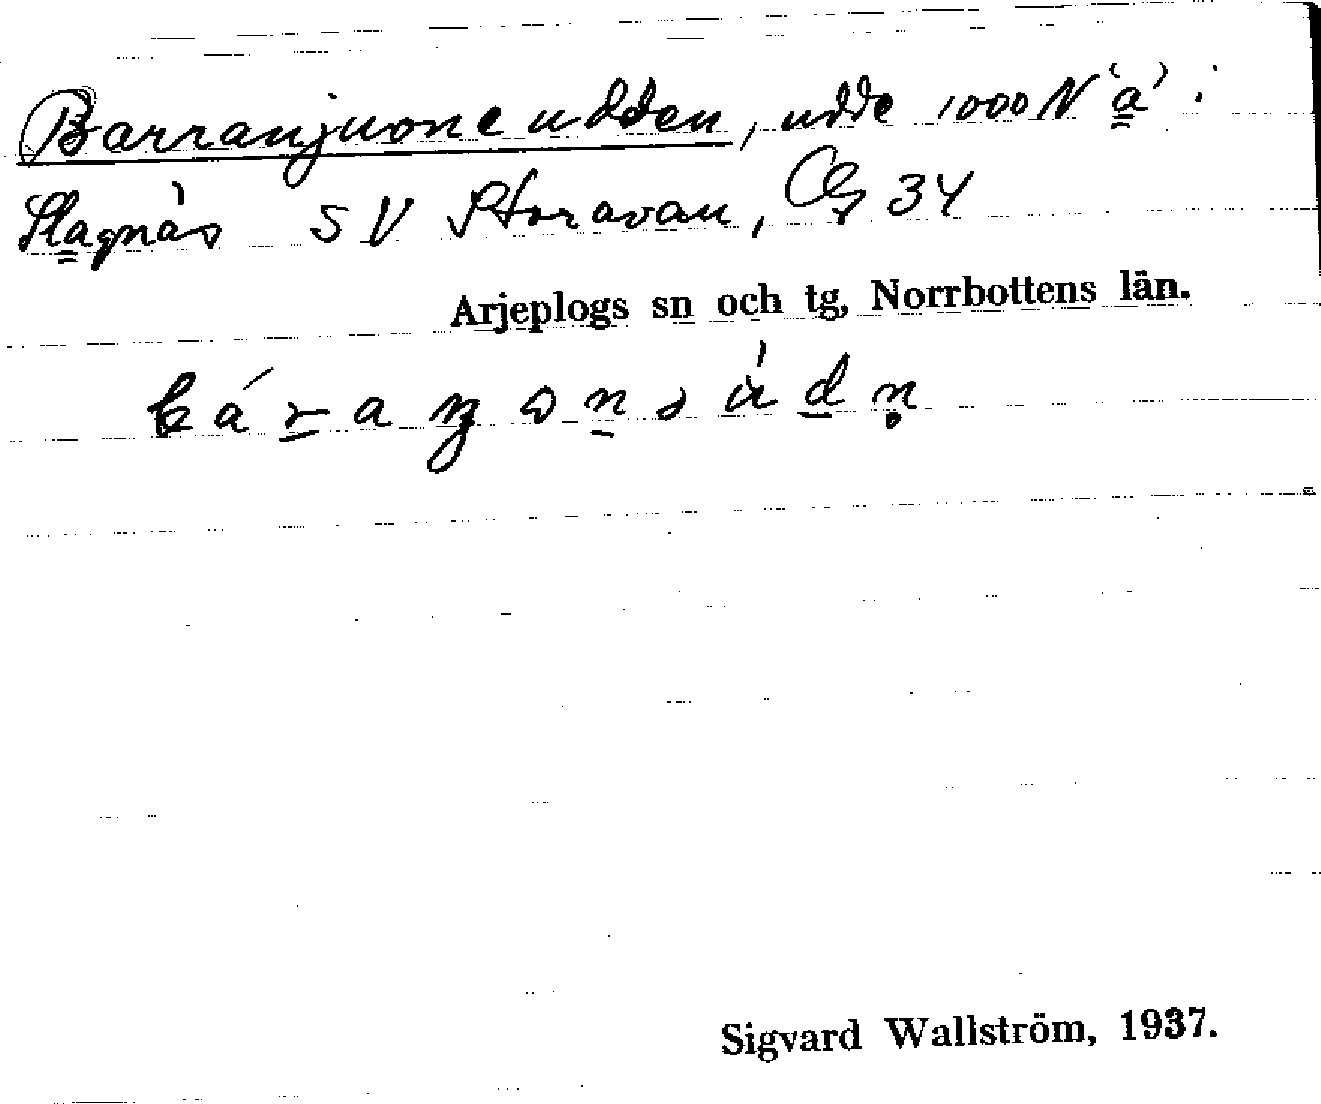 Barranjuoneudden, udde 1000 N 'a' i
Slagnäs SV Storavan, 34
Arjeplogs sn och tg, Norrbottens län.
Sigvard Wallström, 1937.